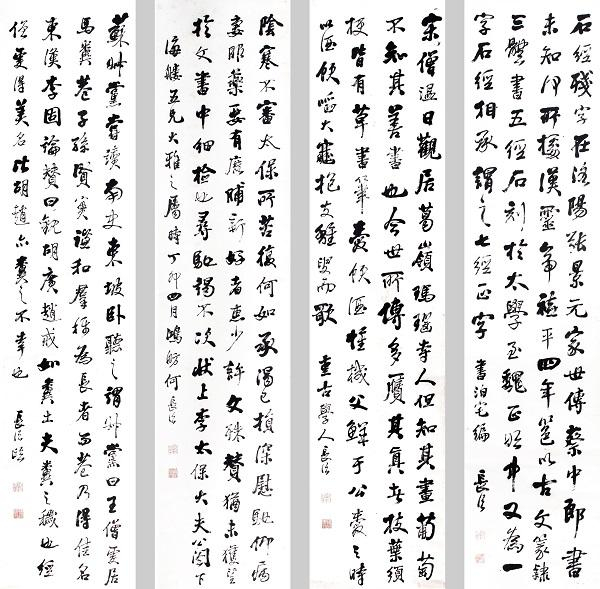 石經殘字在洛陽張景元家世傳蔡中郎書
未知何所據漢靈帝熹平四年邕以古文篆隸
三體書五經石刻於太學至魏正始中又為一
字石經相承謂之七經正字 書泊宅編 長治
宋僧溫日觀居葛嶺瑪瑙寺人但知其畫葡萄
不知其善書也今世所傳多贗其真者枝葉須
梗皆有草書筆 愛飲酒惟機父鮮于公愛之時
以酒飲 大 抱支離叟而歌 重古學人長治
陰寒不審太保所苦復何如承渴已損深慰馳仰
委曲藥要有鹿脯新好者惠少許文殊贊猶未獲望
於文書中細檢也尋馳謁不次狀上李太保大夫公閤下
海樓五兄大雅之屬時丁卯四月鴻舫何長治
蘇叔黨嘗讀南史東坡臥聽之謂叔黨曰王僧虔居
馬糞巷子孫賢實謙和羣稱為長者 巷乃得佳名
東漢李固論贊曰視胡廣趙戒如糞土夫糞之穢也經
僧虔得美名比胡趙亦糞之不幸也 長治